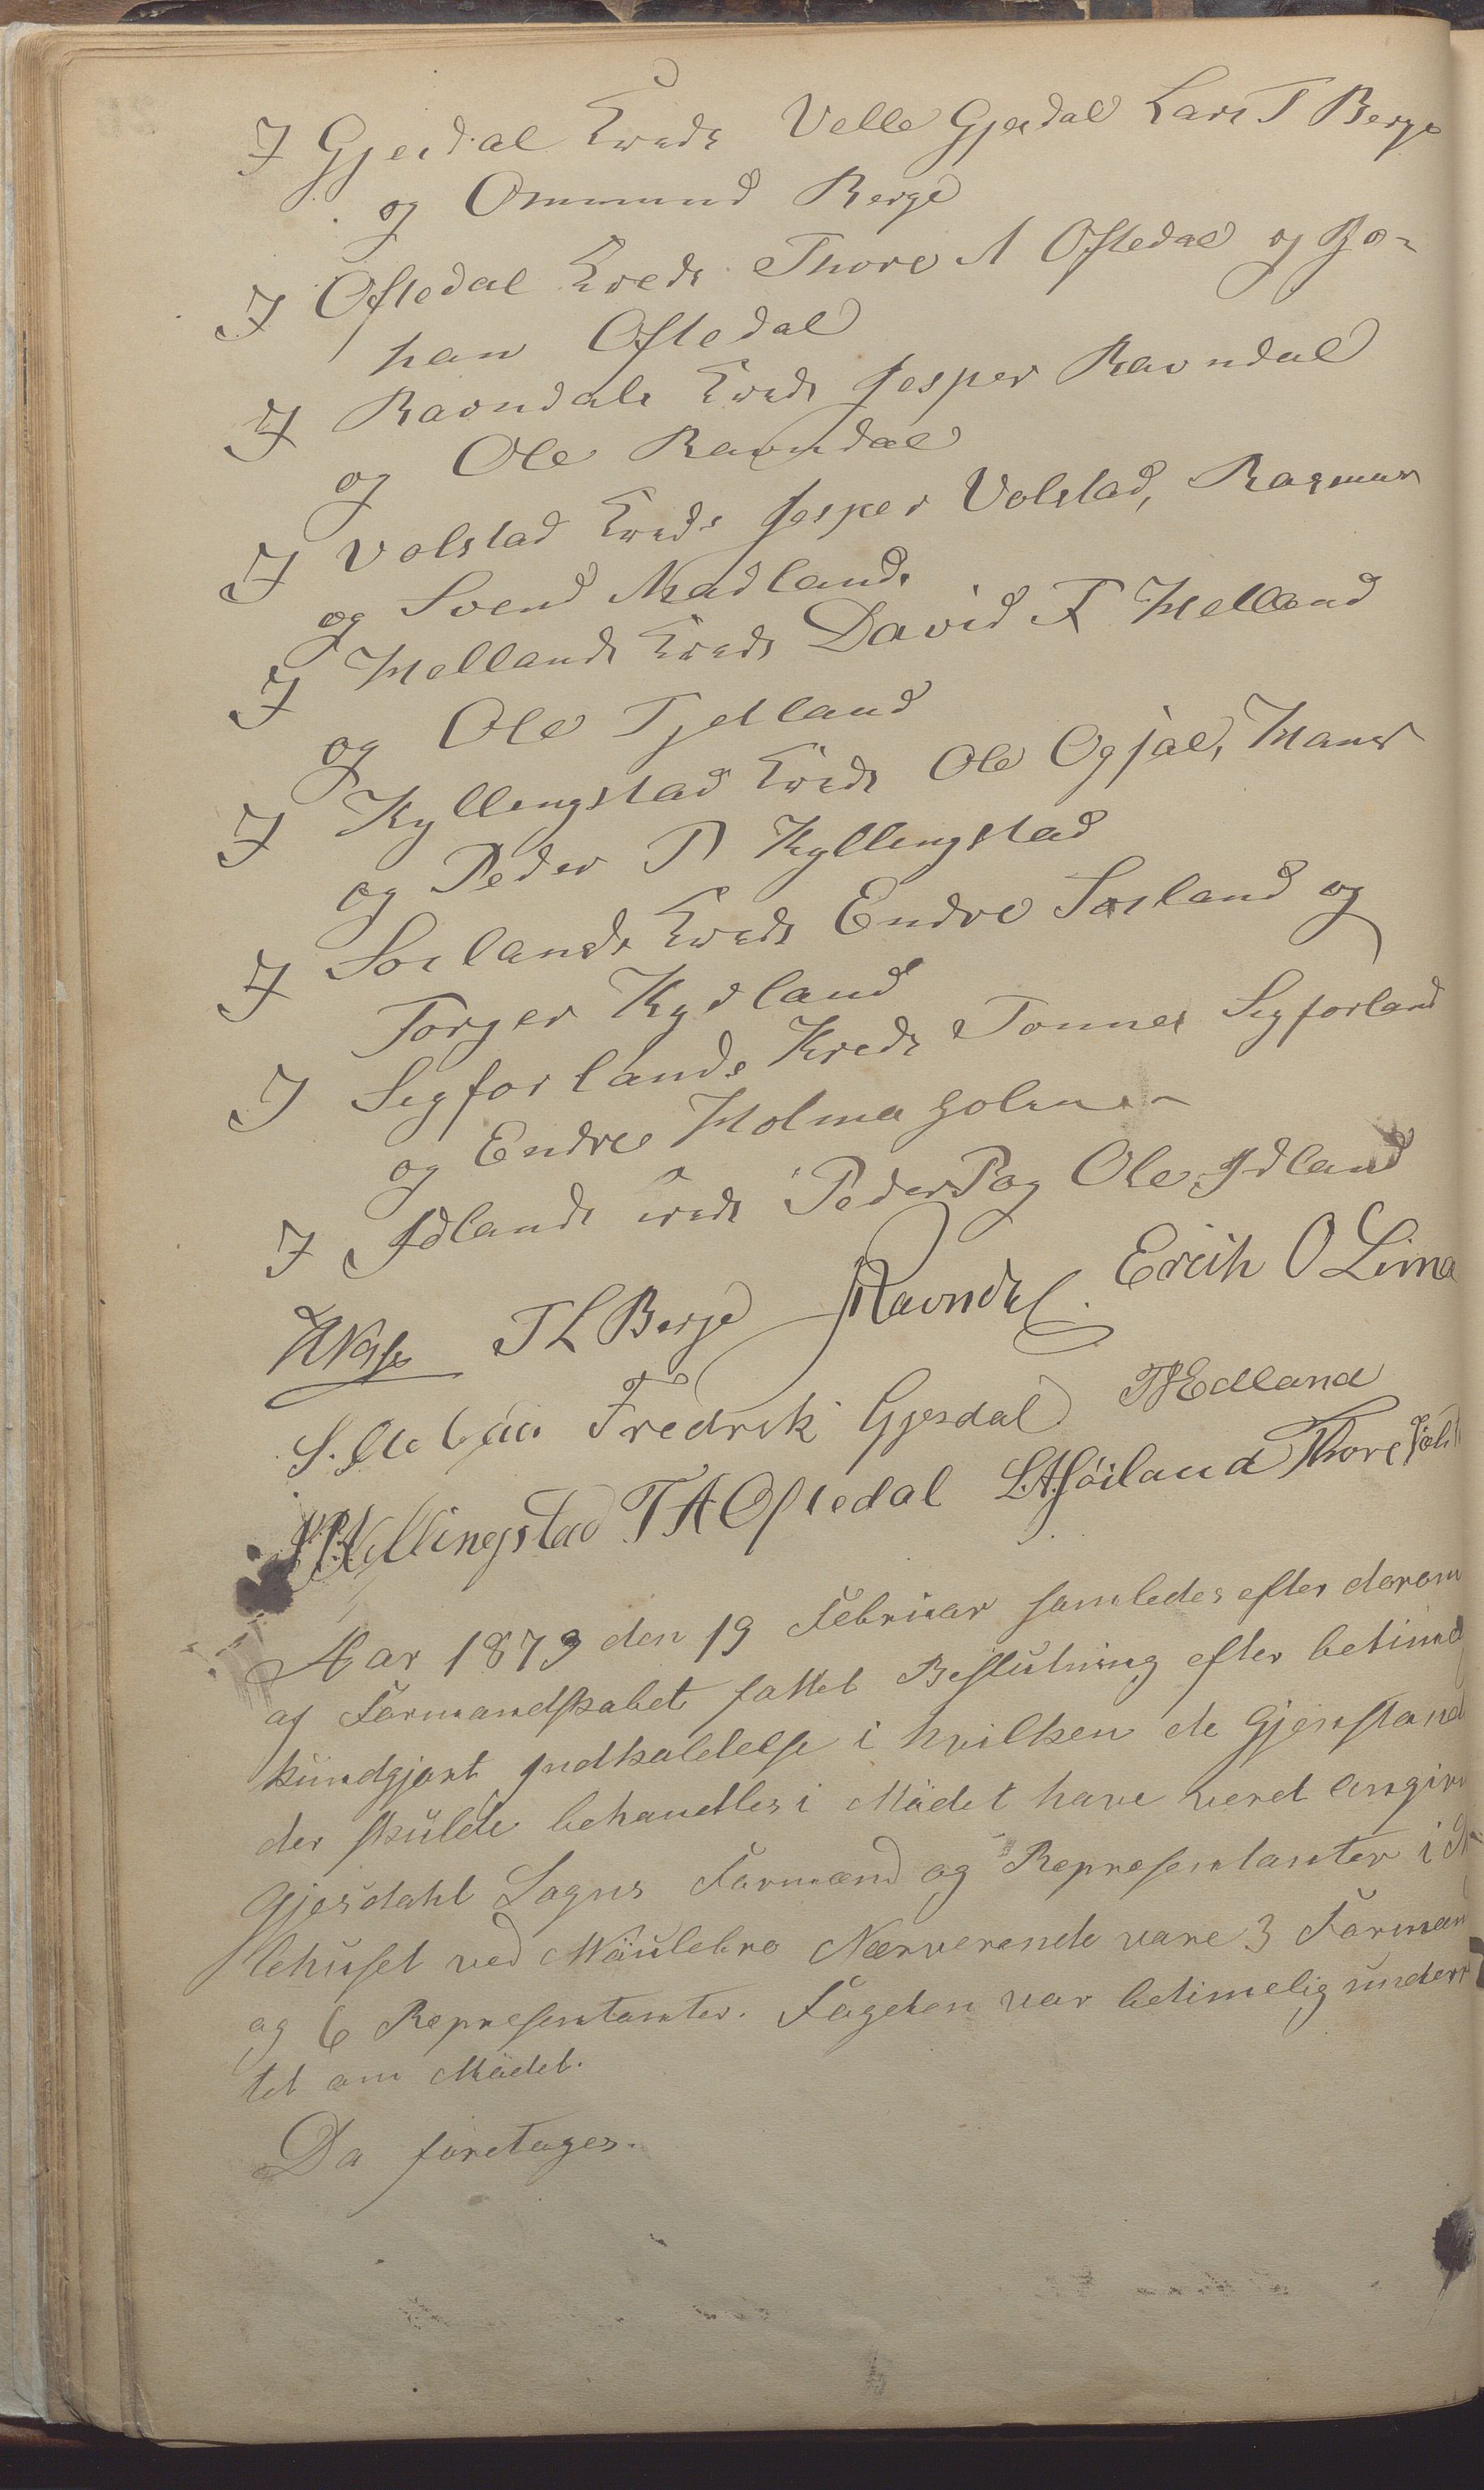 I Gjesdal Kreds Velle Gjesdal Lars T Berge
og Ommund Berge
I Oftedal Kreds Thore A Oftedal og Jo-
han Oftedal
I Ravndals Kreds Jesper Ravndal
og Ole Ravndal
I Volstad Kreds Jesper Volstad, Rasmus
og Svend Madland
I Hellands Kreds David T Helland
og Ole Tjetland
I Kyllingstad Kreds Ole Ogjal, Hans
og Peder P Kyllingstad
I Soslands Kreds Endre Sosland og
Torger Kydland
I Sigforlands Kreds Tonnes Sigforland
og Endre Holmaholmen
I Idlands Kreds Peder P og Ole Idland
T L Berge Ravndal Erich O Lima
Fredrik Gjesdal T Edland
Kyllingstad T A Oftedal L.A. Höiland Thore
Aar 1879 den 19 Februar samledes efter derom
af Formandskabet fattet Beslutning efter betimel
kundgjort Indkaldelse i hvilken de Gjenstand
der skulde behandles i Mödet have veret angivn
Gjesdahl Sogns Formænd og Representanter i
lehuset ved Maulebro Nærverende vare 3 Forman
og 6 Representanter. Fogden var betimelig underr
tet om Mödet.
Da foretages.